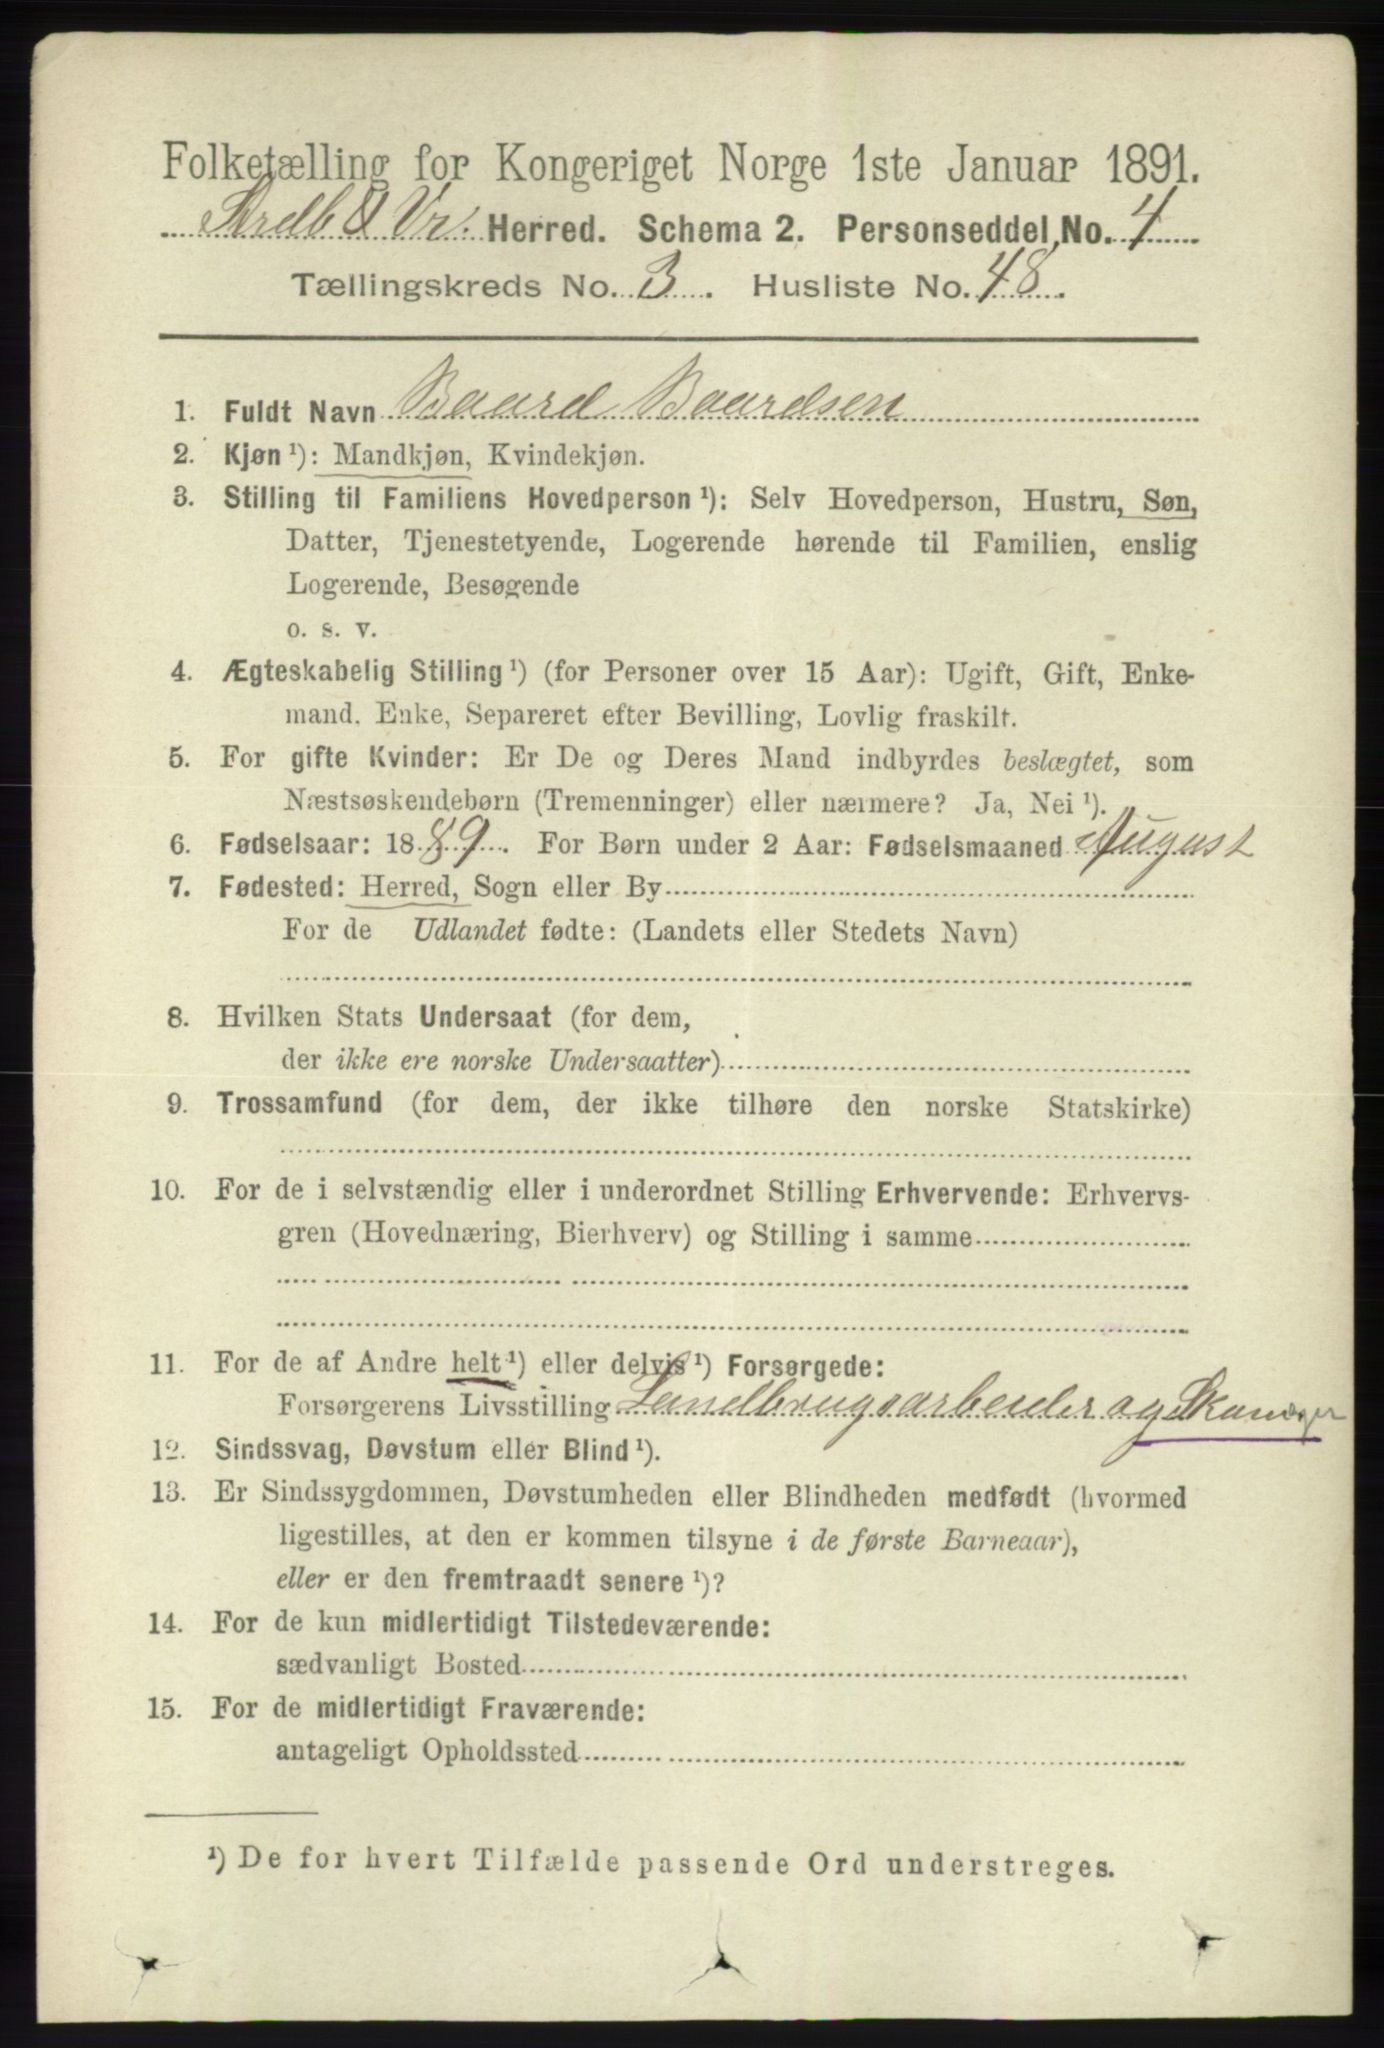 Folketælling for Kongeriget Norge 1ste Januar 1891.
Herred. Schema 2. Personseddel No. 4
Tællingskreds No. 3. Husliste No. 48.
1. Fuldt Navn Baard Baardsen
2. Kjøn ¹): Mandkjøn, Kvindekjøn.
3. Stilling til Familiens Hovedperson ¹): Selv Hovedperson, Hustru, Søn,
Datter, Tjenestetyende, Logerende hørende til Familien, enslig
Logerende, Besøgende
o. s. v.
4. Ægteskabelig Stilling ¹) (for Personer over 15 Aar): Ugift, Gift, Enke-
mand, Enke, Separeret efter Bevilling, Lovlig fraskilt.
5. For gifte Kvinder: Er De og Deres Mand indbyrdes beslægtet, som
Næstsøskendebørn (Tremenninger) eller nærmere? Ja, Nei ¹).
6. Fødselsaar: 1889. For Børn under 2 Aar: Fødselsmaaned August
7. Fødested: Herred, Sogn eller By
For de Udlandet fødte: (Landets eller Stedets Navn)
8. Hvilken Stats Undersaat (for dem,
der ikke ere norske Undersaatter)
9. Trossamfund (for dem, der ikke tilhøre den norske Statskirke)
10. For de i selvstændig eller i underordnet Stilling Erhvervende: Erhvervs-
gren (Hovednæring, Bierhverv) og Stilling i samme
11. For de af Andre helt ¹) eller delvis ¹) Forsørgede:
Forsørgerens Livsstilling Landbrugsarbeider og
12. Sindssvag, Døvstum eller Blind ¹).
13. Er Sindssygdommen, Døvstumheden eller Blindheden medfødt (hvormed
ligestilles, at den er kommen tilsyne i de første Barneaar),
eller er den fremtraadt senere ¹)?
14. For de kun midlertidigt Tilstedeværende:
sædvanligt Bosted
15. For de midlertidigt Fraværende:
antageligt Opholdssted
¹) De for hvert Tilfælde passende Ord understreges.